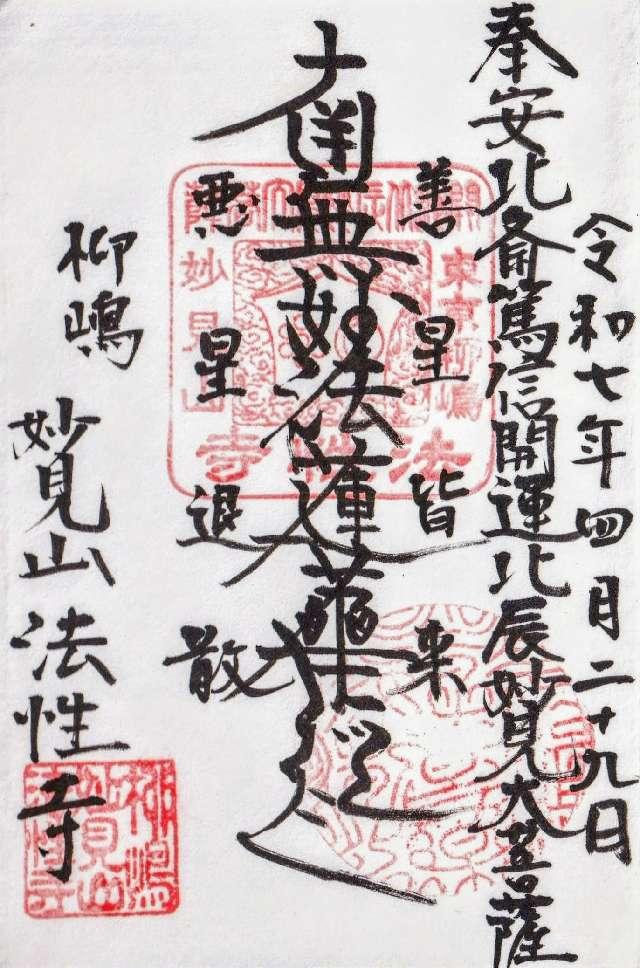 令和七年四月二十九日
奉安北斎篤信開運北辰妙見大菩薩
善星皆来
南無妙法蓮華経
悪星退散
柳嶋
妙見山法性寺
開運北辰妙見大菩薩
東京柳嶋
妙見山
法性寺
柳嶋
妙見山
法性寺